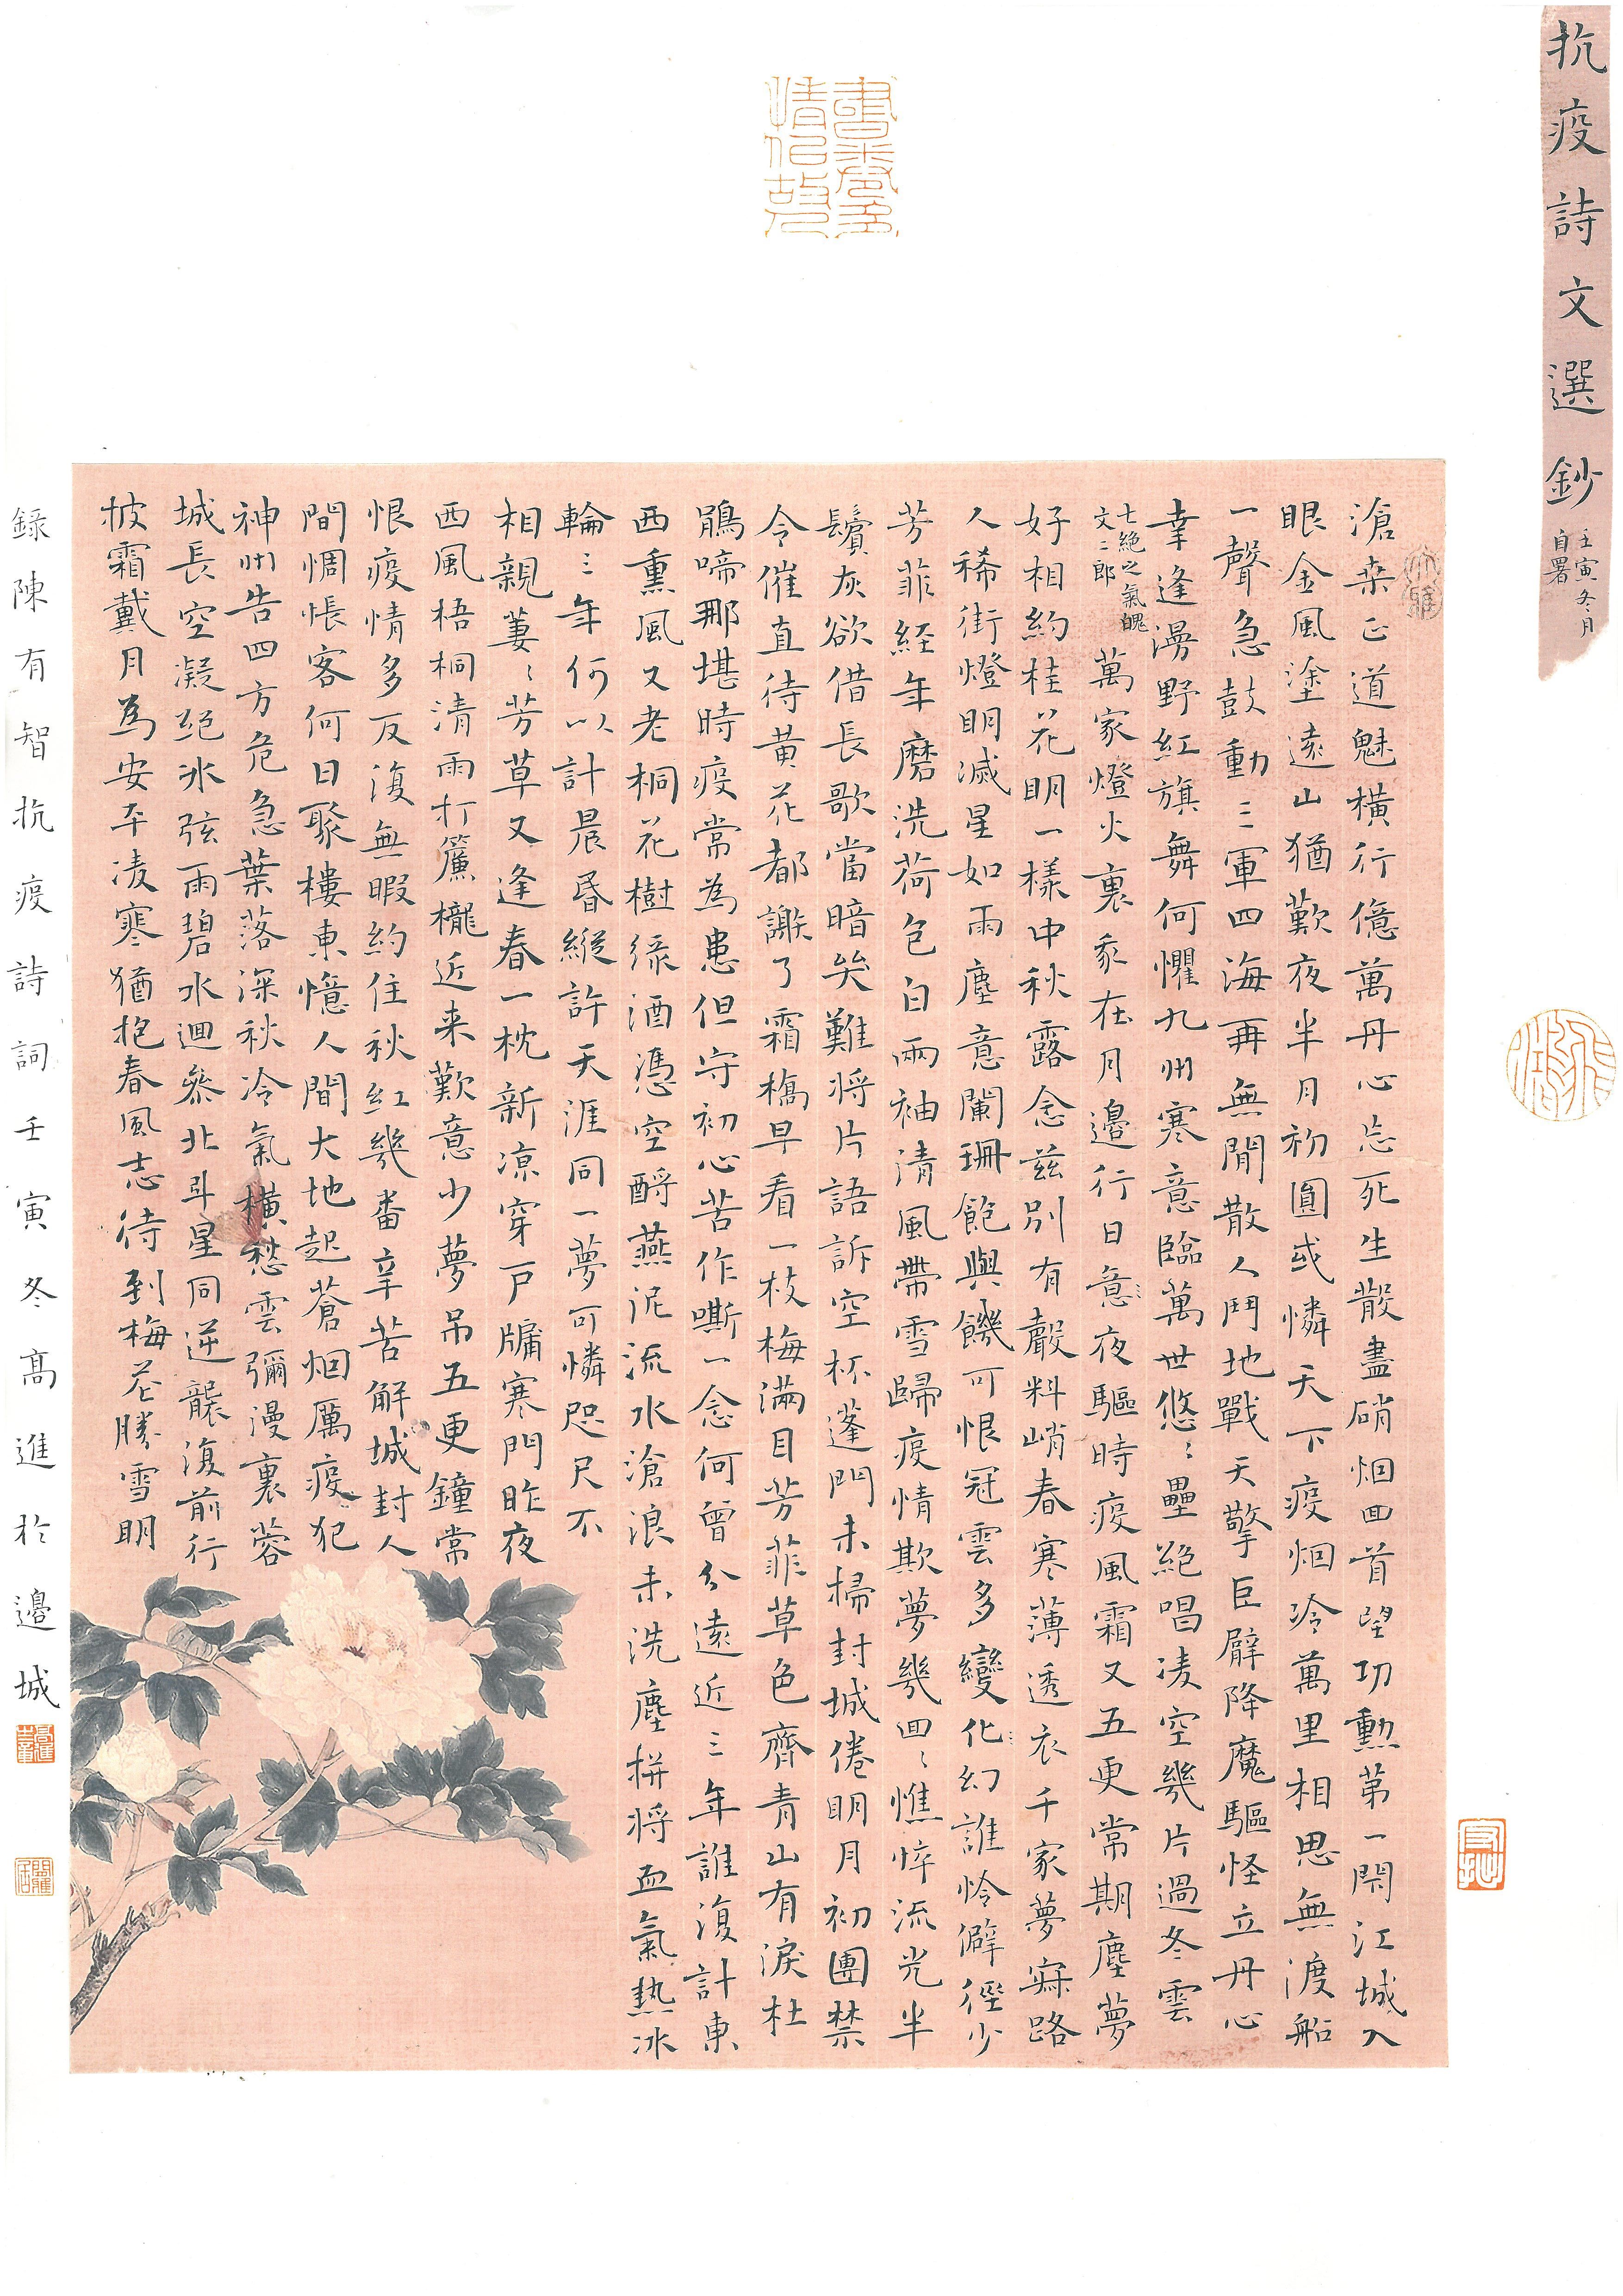 抗疫詩文選鈔
壬寅冬月
自署
滄桑正道魅橫行億萬丹心忘死生散盡硝烟回首望功勳第一閑江城入
眼金風塗遠山猶歎夜半月初圓或憐天下疫烟冷萬里相思無渡船
一聲急鼓動三軍四海再無閒散人鬥地戰天擎巨臂降魔驅怪立丹心
幸逢湯野紅旗舞何懼九州寒意臨萬世悠悠壘絕唱凌空幾片過冬雲
七絕之氣醜
文二郎
萬家燈火裏家在月邊行日意夜驅時疫風霜又五更常期塵夢
好相約桂花明一樣中秋露念茲別有聲料峭春寒薄透衣千家夢寐路
人稀街燈明滅星如雨塵意闌珊飽與饑可恨冠雲多變化幻誰怜僻徑少
芳菲經年磨洗荷包白兩袖清風帶雪歸疫情欺夢幾回回憔悴流光半
鬢灰欲借長歌當暗矣難將片語訴空杯蓬門未掃封城倦明月初團禁
令催直待黃花都謝了霜橋早看一枝梅滿目芳菲草色齊青山有淚杜
鵑啼那堪時疫常為患但守初心苦作嘶一念何曾分遠近三年誰復計東
西熏風又老桐花樹綠酒憑空酹燕泥流水滄浪未洗塵拼將血氣熱冰
輪三年何以計晨昏縱許天涯同一夢可憐咫尺不
相親萋萋芳草又逢春一枕新凉穿戶牖寒門昨夜
西風梧桐清雨打簾櫳近来歎意少夢吊五更鐘常
恨疫情多反復無暇約住秋紅幾番辛苦解城封人
間惆悵客何日聚樓東憶人間大地起蒼烟厲疫犯
神州告四方危急葉落深秋冷氣橫愁雲彌漫裏蓉
城長空凝絕冰弦雨碧水迴參北斗星同逆襲復前行
披霜戴月為安平凌寒猶抱春風志待到梅花勝雪明
錄陳有智抗疫詩詞壬寅冬高進於邊城